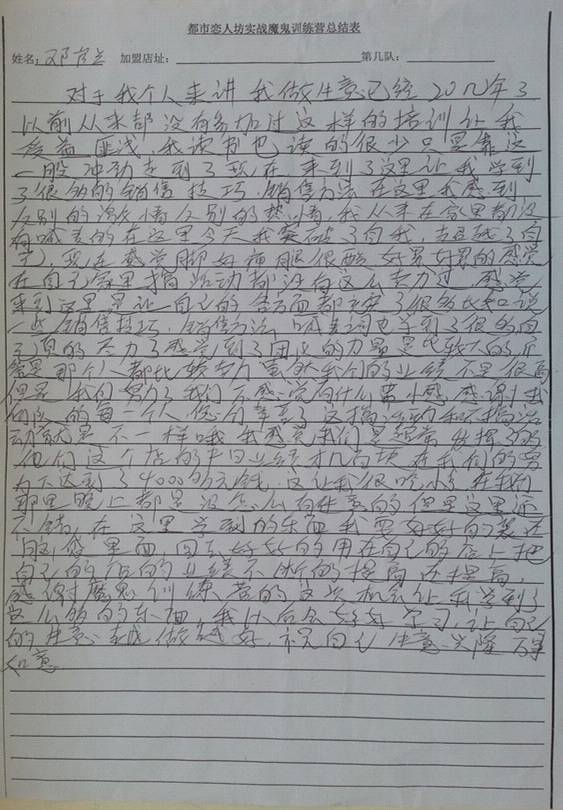 都市恋人坊实战魔鬼训练营总结表
姓名： 加盟店址： 第几队：
对于我个人来讲 我做生意已经20几年了
以前从来都没有参加过这样的培训让我
受益匪浅，我读书也读的很少只是靠这
一股冲劲走到了现在，来到了这里让我学到
了很多的销售技巧，销售方案在这里我感到
的激情 的热情，我从来在家里都没
有喊麦的在这里今天我突破了自我，超越了自
己，现在感觉脚好痛眼很酸好累好累的感觉
在自己家里搞活动都没有这么卖力过，感觉
来到这里是让自己的各方面都 了很多比如说
一些销售技巧，销售方法，喊麦词也学到了很多的
真的尽力了感觉到了团队的力量是比较大的
那个人都比较卖力虽然我们的业绩不是很高
但是我们努力了我们不感觉有什么 感谢我
团队的每一个人 您们辛苦了 搞活动和不搞活
动就是不一样哦 我感觉我们是超常发挥了的
他们这个店的平日业绩才几百块在我们的努
力下达到了4000多元钱，这让我很吃惊 在我们
那里晚上都是没怎么有生意的但是这里还
不错，在这里学到的东西我要好好的装进
脑袋里面，回去好好的用在自己的店上把
自己的店的业绩不断的提高 还提高，
感谢魔鬼训练营的这次机会让我学到了
这么多的东西，我以后会好好学习，让自己
的生意越做越好，祝自己生意兴隆 万事
如意